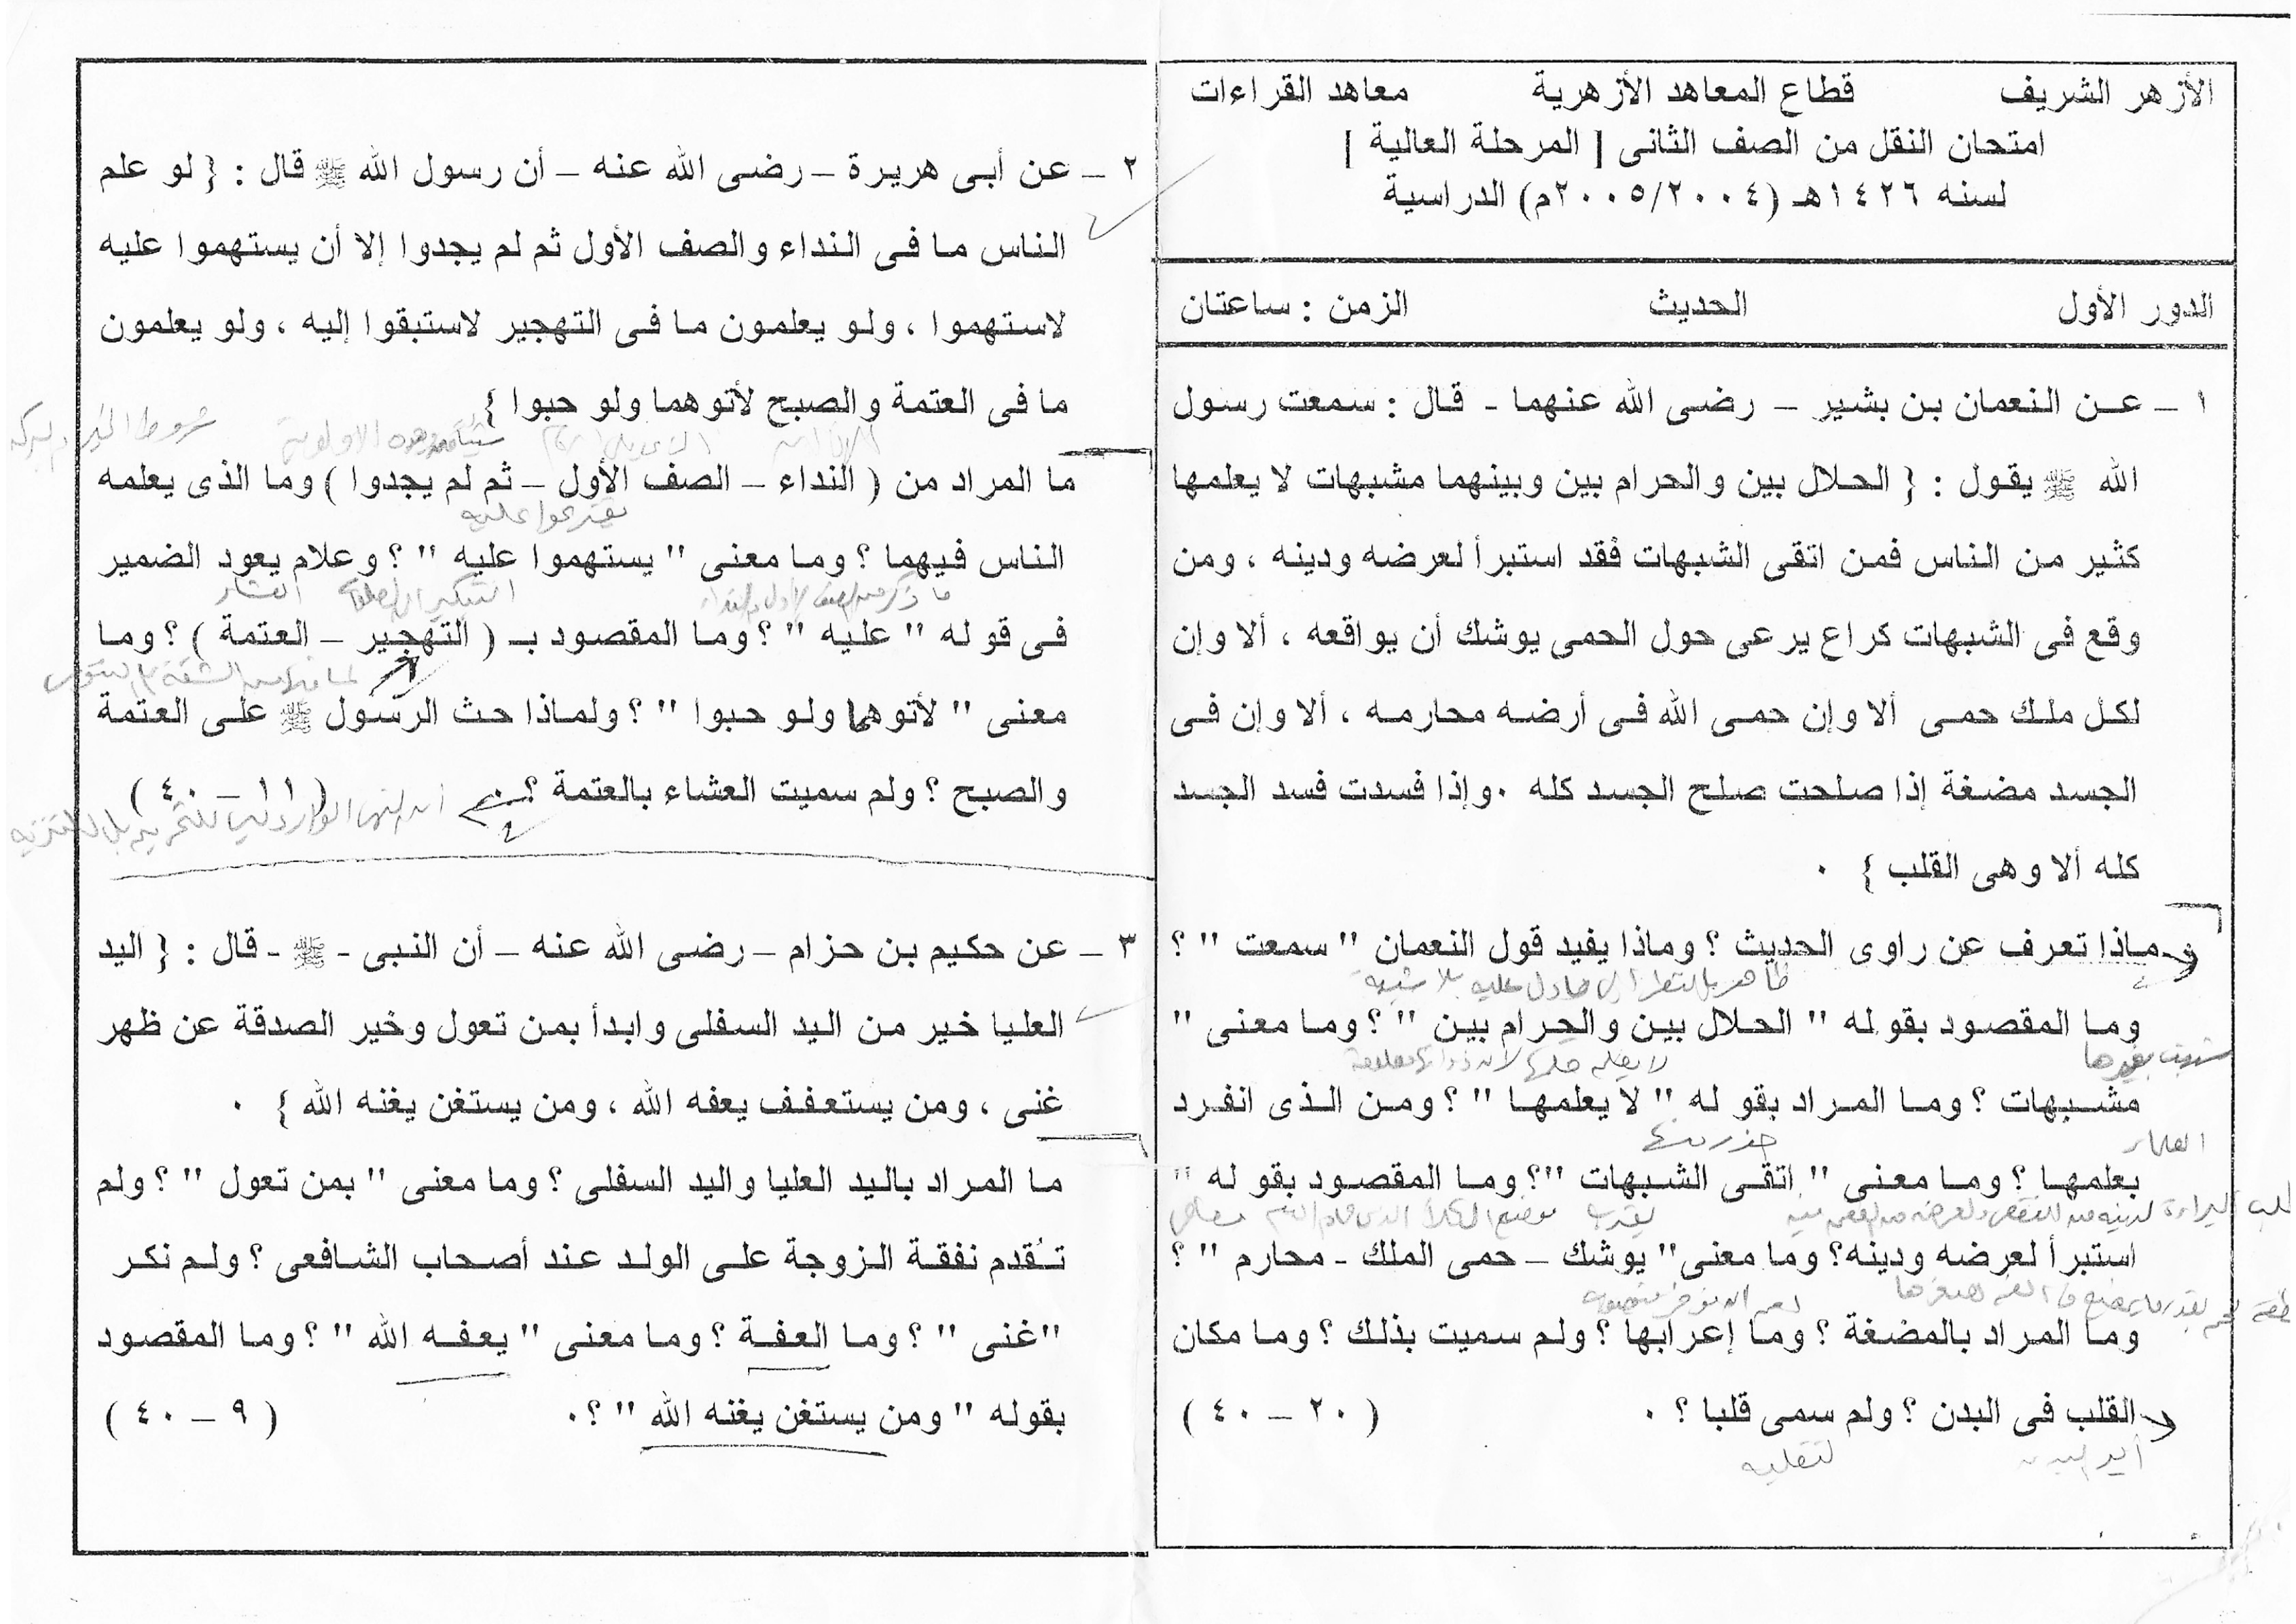 الأزهر الشريف قطاع المعاهد الأزهرية معاهد القراءات
امتحان النقل من الصف الثانى [ المرحلة العالية ]
لسنه ١٤٢٦هـ (٢٠٠٥/٢٠٠٤م) الدراسية
الدور الأول الحديث الزمن : ساعتان
١ – عن النعمان بن بشير – رضى الله عنهما - قال : سمعت رسول
الله ﷺ يقول : { الحلال بين والحرام بين وبينهما مشبهات لا يعلمها
كثير من الناس فمن اتقى الشبهات فقد استبرأ لعرضه ودينه ، ومن
وقع فى الشبهات كراع يرعى حول الحمى يوشك أن يواقعه ، ألا وإن
لكل ملك حمى ألا وإن حمى الله فى أرضه محارمه ، ألا وإن فى
الجسد مضغة إذا صلحت صلح الجسد كله ٠ وإذا فسدت فسد الجسد
كله ألا وهى القلب } ٠
ماذا تعرف عن راوى الحديث ؟ وماذا يفيد قول النعمان " سمعت " ؟
ظاهر بالنظر إلى مادل عليه بلا شبهة
وما المقصود بقوله " الحلال بين والحرام بين " ؟ وما معنى "
شبهت بغيرها لا يعلم حكمها
مشبهات ؟ وما المراد بقوله " لا يعلمها " ؟ ومن الذى انفرد
العلماء حذر منها
بعلمها ؟ وما معنى " اتقى الشبهات "؟ وما المقصود بقوله "
البراءة لدينه من النقص ولعرضه من الطعن فيه يقرب
استبرأ لعرضه ودينه؟ وما معنى" يوشك – حمى الملك - محارم " ؟
وما المراد بالمضغة ؟ وما إعرابها ؟ ولم سميت بذلك ؟ وما مكان
القلب فى البدن ؟ ولم سمى قلبا ؟ ٠ ( ٢٠ – ٤٠ )
لتقلبه
٢ – عن أبى هريرة – رضى الله عنه – أن رسول الله ﷺ قال : { لو علم
الناس ما فى النداء والصف الأول ثم لم يجدوا إلا أن يستهموا عليه
لاستهموا ، ولو يعلمون ما فى التهجير لاستبقوا إليه ، ولو يعلمون
ما فى العتمة والصبح لأتوهما ولو حبوا }
ما المراد من ( النداء – الصف الأول – ثم لم يجدوا ) وما الذى يعلمه
يقترعوا عليه
الناس فيهما ؟ وما معنى " يستهموا عليه " ؟ وعلام يعود الضمير
التبكير إلى الصلاة العشاء
فى قوله " عليه " ؟ وما المقصود بـ ( التهجير – العتمة ) ؟ وما
معنى " لأتوهما ولو حبوا " ؟ ولماذا حث الرسول ﷺ على العتمة
والصبح ؟ ولم سميت العشاء بالعتمة ؟ ٠ ( ١١ – ٤٠ )
٣ – عن حكيم بن حزام – رضى الله عنه – أن النبى - ﷺ - قال : { اليد
العليا خير من اليد السفلى وابدأ بمن تعول وخير الصدقة عن ظهر
غنى ، ومن يستعفف يعفه الله ، ومن يستغن يغنه الله } ٠
ما المراد باليد العليا واليد السفلى ؟ وما معنى " بمن تعول " ؟ ولم
تـُقدم نفقة الزوجة على الولد عند أصحاب الشافعى ؟ ولم نكر
"غنى " ؟ وما العفة ؟ وما معنى " يعفه الله " ؟ وما المقصود
بقوله " ومن يستغن يغنه الله " ؟٠ ( ٩ – ٤٠ )